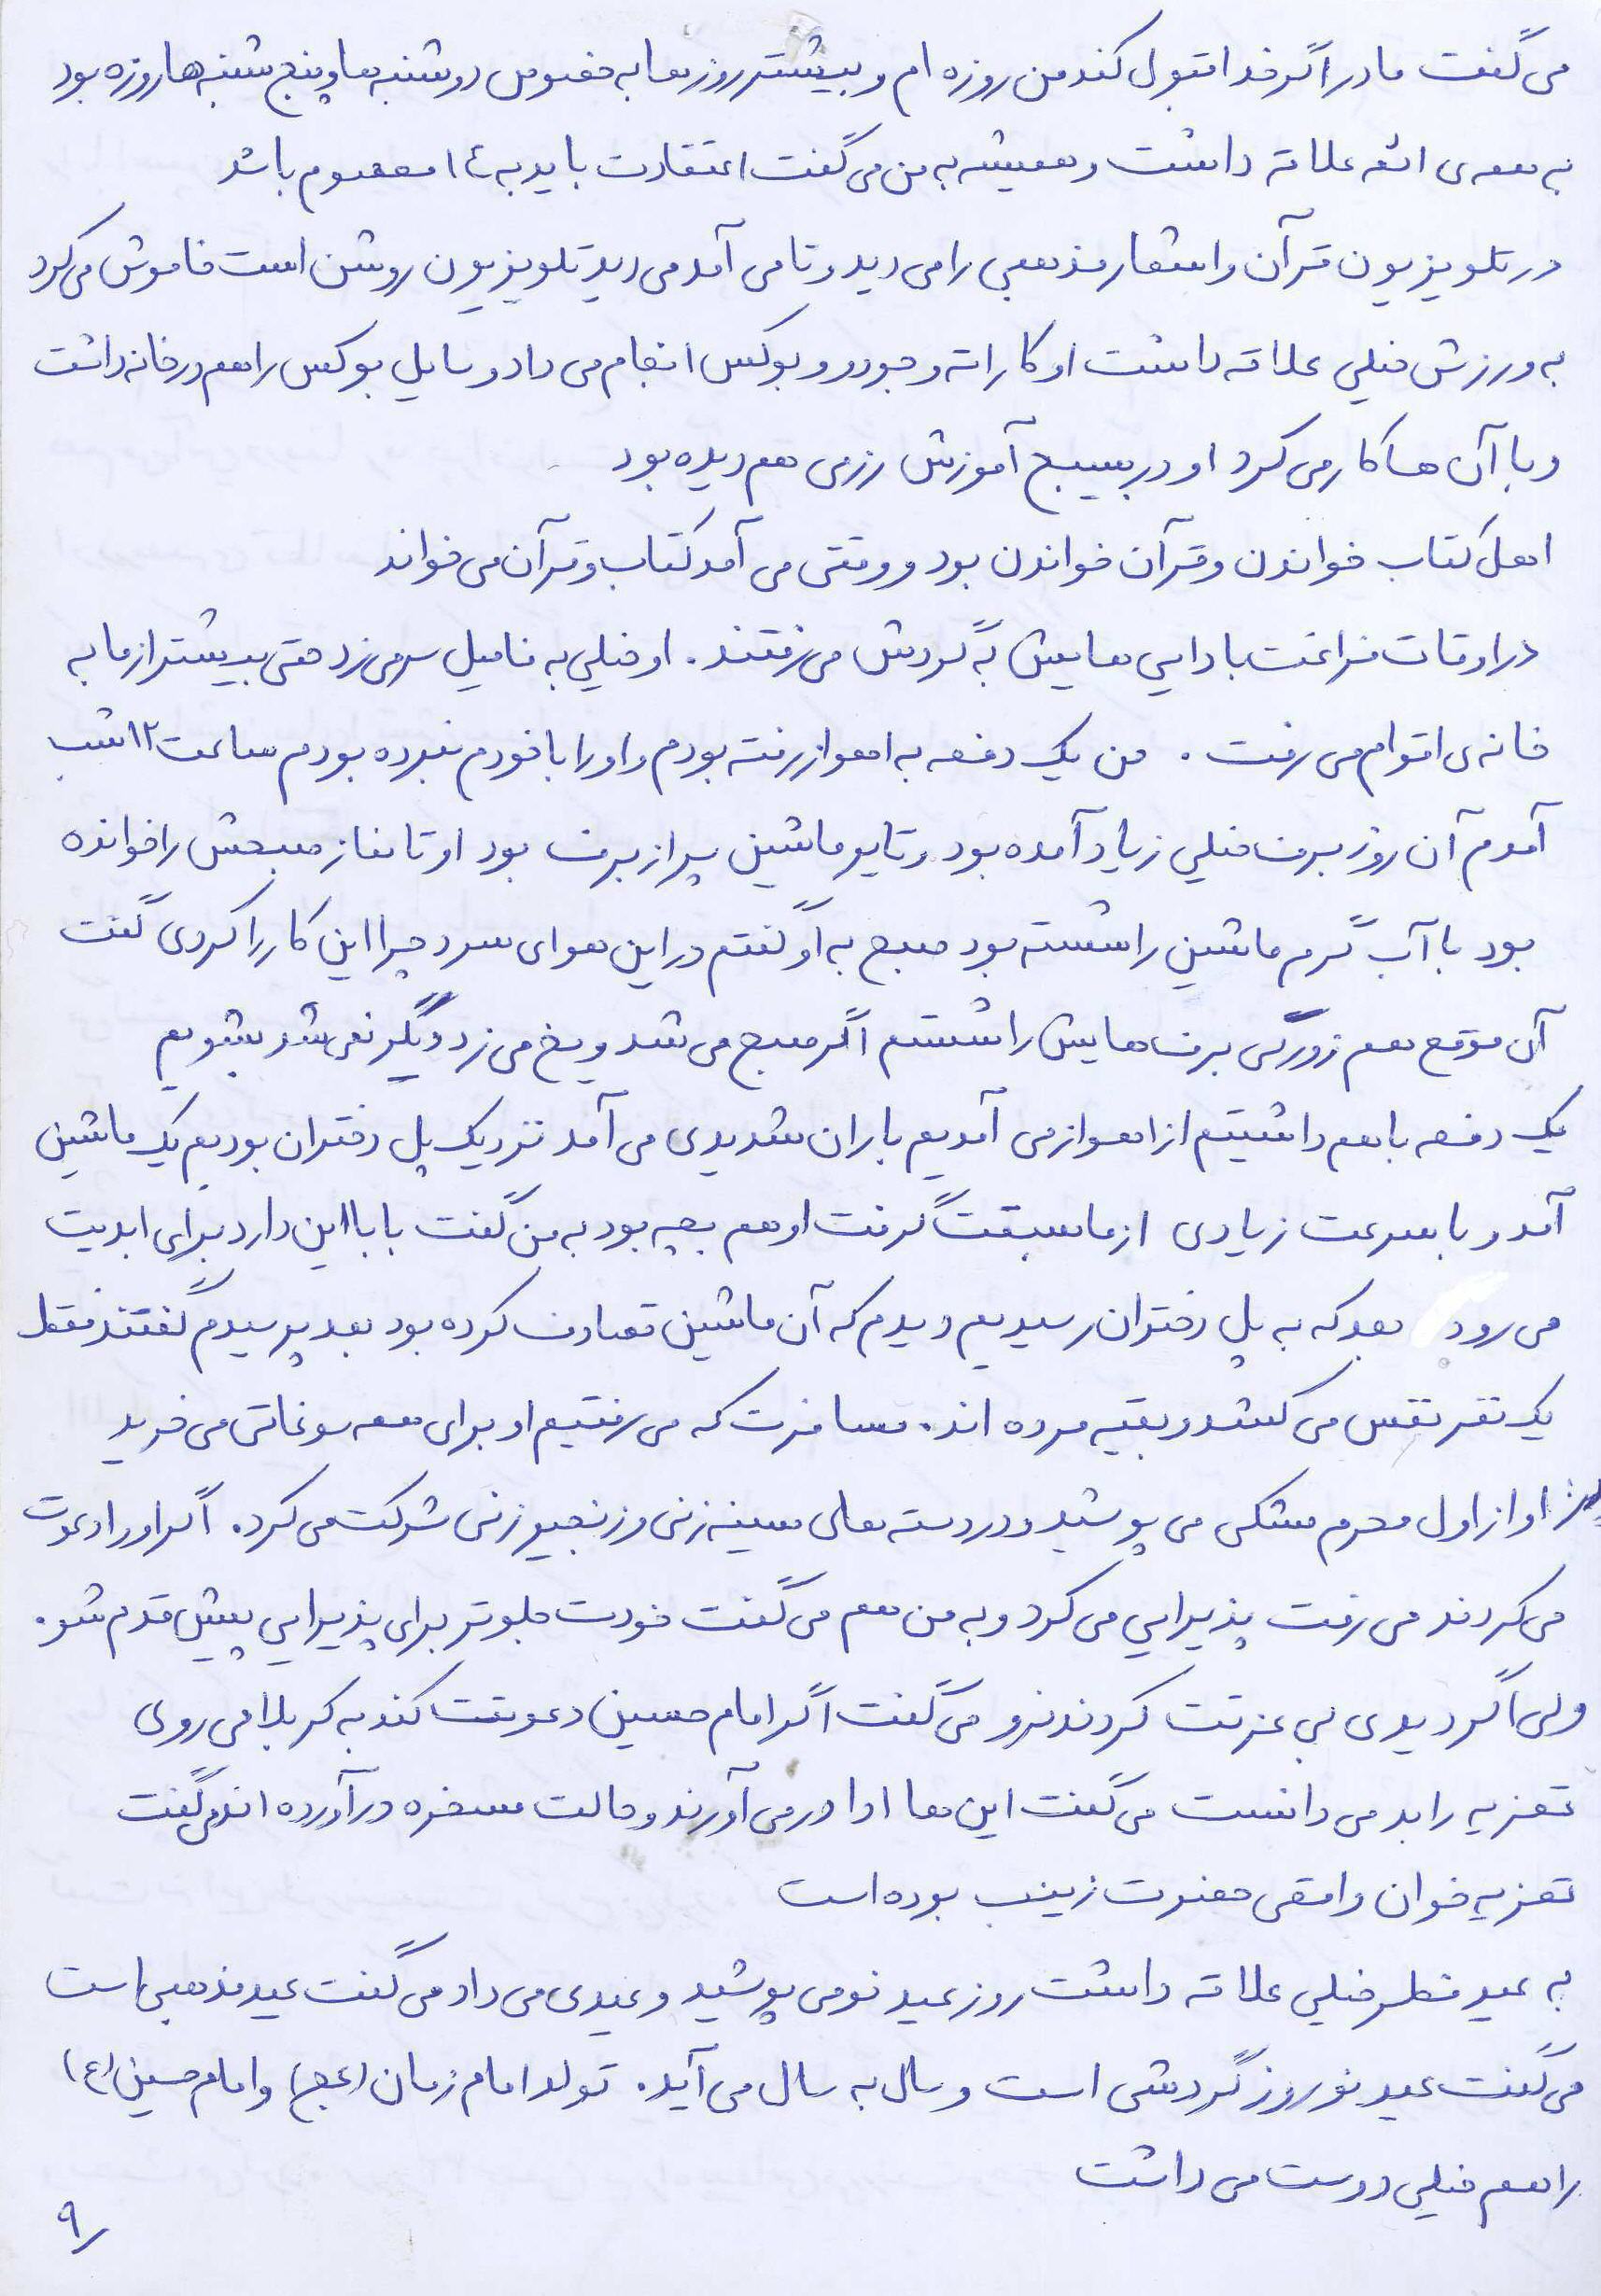 می گفت مادر اگر خدا قبول کند من روزه ام و بیشتر روزها به خصوص دوشنبه ها و پنج شنبه ها روزه بود
به همه ی ائمه علاقه داشت و همیشه به من می گفت اعتقادت باید به ۱٤ معصوم باشد
در تلویزیون قرآن و اشعار مذهبی را می دید و تا می آمد می دید تلویزیون روشن است خاموش می کرد
به ورزش خیلی علاقه داشت او کاراته و جودو و بوکس انجام می داد وسایل بوکس را هم در خانه داشت
و با آن ها کار می کرد او در بسیج آموزش رزمی هم دیده بود
اهل کتاب خواندن و قرآن خواندن بود و وقتی می آمد کتاب و قرآن می خواند
در اوقات فراغت با دایی هایش به گردش می رفتند. او خیلی به فامیل سر می زد حتی بیشتر از ما به
خانه ی اقوام می رفت. من یک دفعه به اهواز رفته بودم و او را با خودم نبرده بودم ساعت ۱۲ شب
آمدم آن روز برف خیلی زیاد آمده بود و تایر ماشین پر از برف بود او تا نماز صبحش را خوانده
بود با آب گرم ماشین را شسته بود صبح به او گفتم در این هوای سرد چرا این کار را کردی گفت
آن موقع هم زورکی برف هایش را شستم اگر صبح می شد و یخ می زد دیگر نمی شد بشویم
یک دفعه با هم داشتیم از اهواز می آمدیم باران شدیدی می آمد نزدیک پل دختران بودیم یک ماشین
آمد و با سرعت زیادی از ما سبقت گرفت او هم بچه بود به من گفت بابا این دارد برای ابدیت
می رود بعد که به پل دختران رسیدیم دیدم که آن ماشین تصادف کرده بود بعد پرسیدم گفتند فقط
یک نفر نفس می کشد و بقیه مرده اند. مسافرت که می رفتیم او برای همه سوغاتی می خرید
او از اول محرم مشکی می پوشید و در دسته های سینه زنی و زنجیر زنی شرکت می کرد. اگر او را دعوت
می کردند می رفت پذیرایی می کرد و به من هم می گفت خودت جلوتر برای پذیرایی پیش قدم شو.
ولی اگر دیدی بی عزتت کردند نرو می گفت اگر امام حسین دعوتت کند به کربلا می روی
تعزیه را بد می دانست می گفت این ها ادا در می آورند و حالت مسخره در آورده اند می گفت
تعزیه خوان واقعی حضرت زینب بوده است
به عید فطر خیلی علاقه داشت روز عید نو می پوشید و عیدی می داد می گفت عید مذهبی است
می گفت عید نوروز گردشی است و سال به سال می آید. تولد امام زمان (عج) و امام حسین (ع)
را هم خیلی دوست می داشت
۹